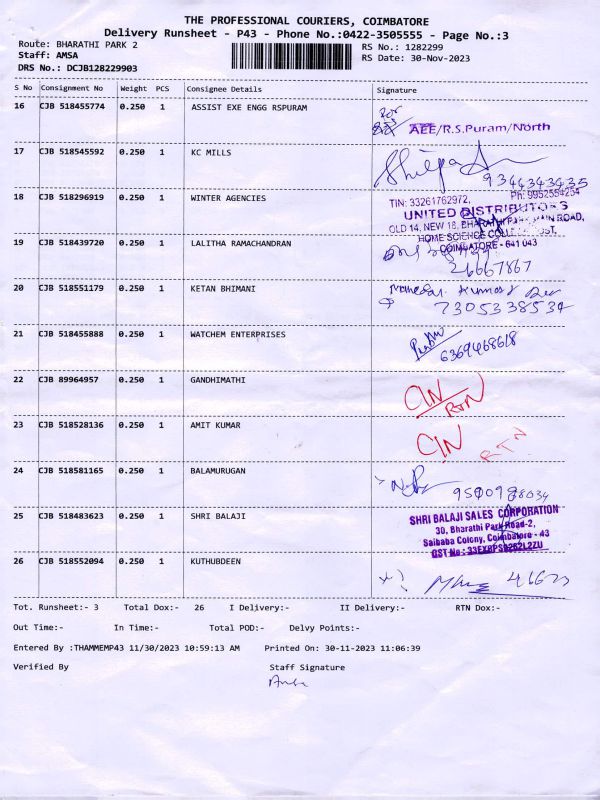 THE PROFESSIONAL COURIERS, COIMBATORE
Delivery Runsheet - P43 - Phone No.:0422-3505555 - Page No.:3
Route: BHARATHI PARK 2
RS No.: 1282299
Staff: AMSA
RS Date: 30-Nov-2023
DRS No.: DCJB128229903
S No Consignment No Weight PCS Consignee Details Signature
16 CJB 518455774 0.250 1 ASSIST EXE ENGG RSPURAM
AEE/R.S.Puram/North
17 CJB 518545592 0.250 1 KC MILLS
9344343435
18 CJB 518296919 0.250 1 WINTER AGENCIES
TIN: 33261762972, Ph: 9952554254
UNITED DISTRIBUTORS
OLD 14, NEW 18, BHARATHI PARK MAIN ROAD,
HOME SCIENCE COLLEGE POST,
COIMBATORE - 641 043
19 CJB 518439720 0.250 1 LALITHA RAMACHANDRAN
26667867
20 CJB 518551179 0.250 1 KETAN BHIMANI
7305338534
21 CJB 518455888 0.250 1 WATCHEM ENTERPRISES
6369468618
22 CJB 89964957 0.250 1 GANDHIMATHI
CIN
RTN
23 CJB 518528136 0.250 1 AMIT KUMAR
CIN RTN
24 CJB 518581165 0.250 1 BALAMURUGAN
25 CJB 518483623 0.250 1 SHRI BALAJI
SHRI BALAJI SALES CORPORATION
30, Bharathi Park Road-2,
Saibaba Colony, Coimbatore - 43
GST No :
26 CJB 518552094 0.250 1 KUTHUBDEEN
Tot. Runsheet:- 3 Total Dox:- 26 I Delivery:- II Delivery:- RTN Dox:-
Out Time:- In Time:- Total POD:- Delvy Points:-
Entered By :THAMMEMP43 11/30/2023 10:59:13 AM Printed On: 30-11-2023 11:06:39
Verified By Staff Signature